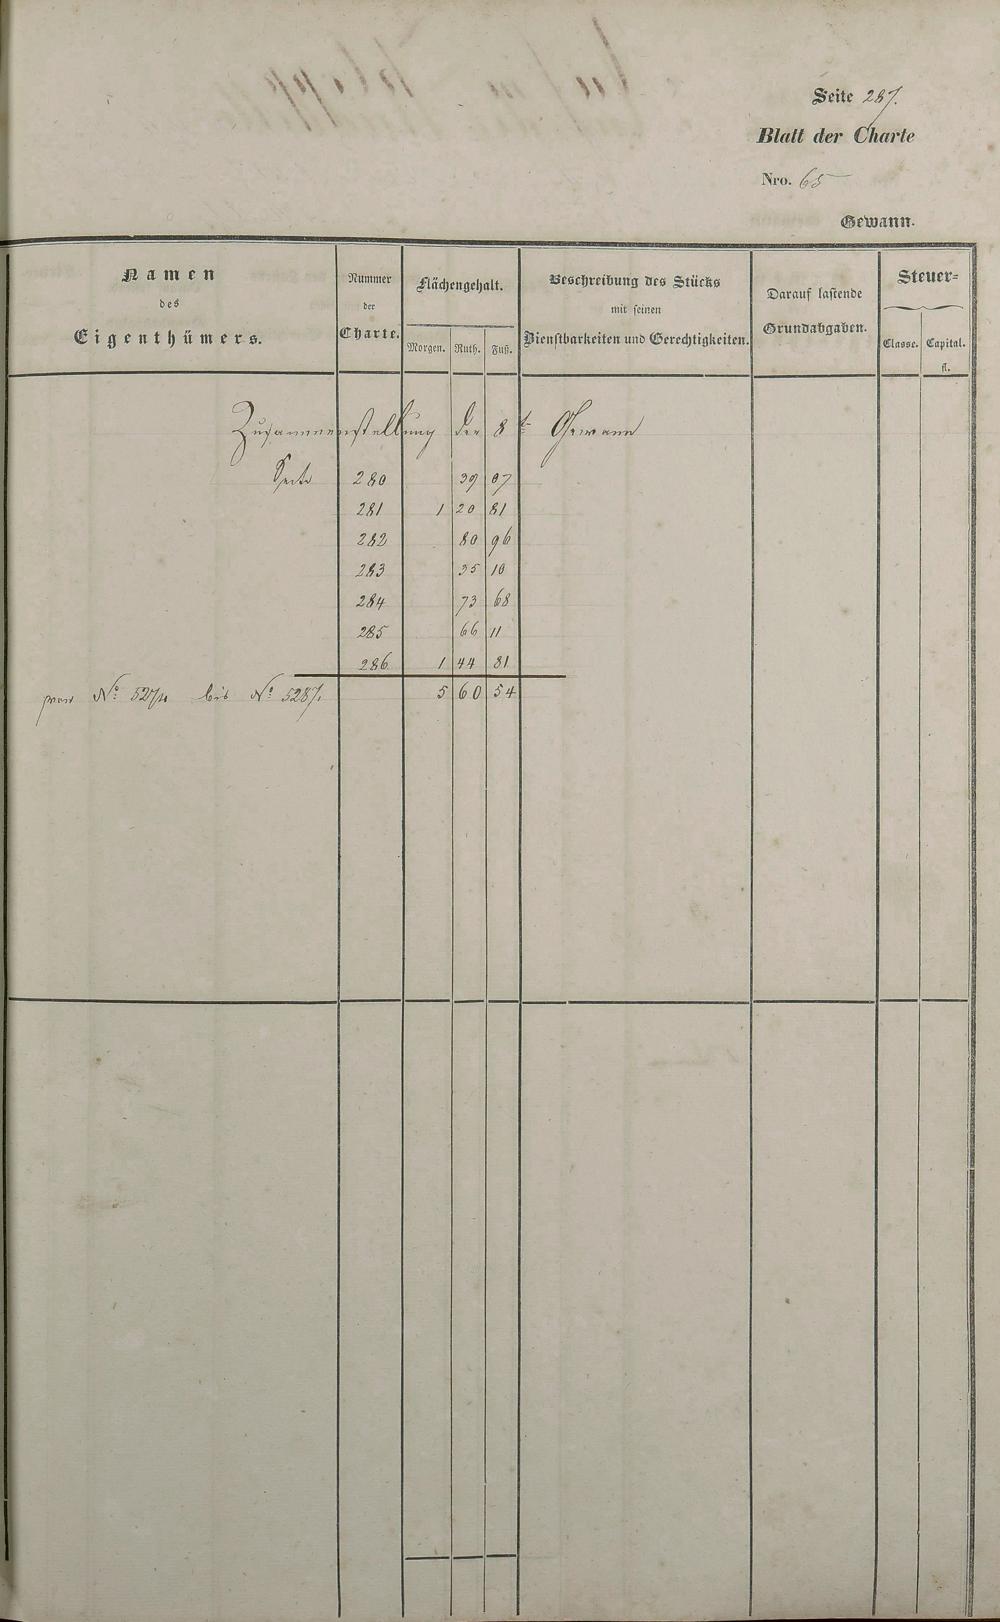 Seite 287.
Blatt der Charte
Nro. 65
Gewann.
Namen
des
Eigenthümers.
Nummer
der
Charte.
Flächengehalt.
Morgen. Ruth. Fuß.
Beschreibung des Stücks
mit seinen
Dienstbarkeiten und Gerechtigkeiten.
Darauf lastende
Grundabgaben.
Steuer-
Classe. Capital.
fl.
Zusammenstellung der 8t Gewann
Seite 280 39 07
281 1 20 81
282 80 96
283 35 10
284 73 68
285 66 11
286 1 44 81
von No: 5274 bis No: 5287. 5 60 54